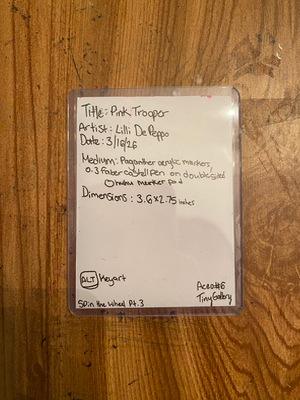 Title: Pink Trooper
Artist: Lilli DePeppo
Date: 3/16/26
Medium: acrylic markers,
0.3 Faber castell pen on double sided
Ohuhu marker pad
Dimensions: 3.6 x 2.75 inches
ALT Keyart
Aceo#6
Spin the wheel Pt.3
Tiny Gallery